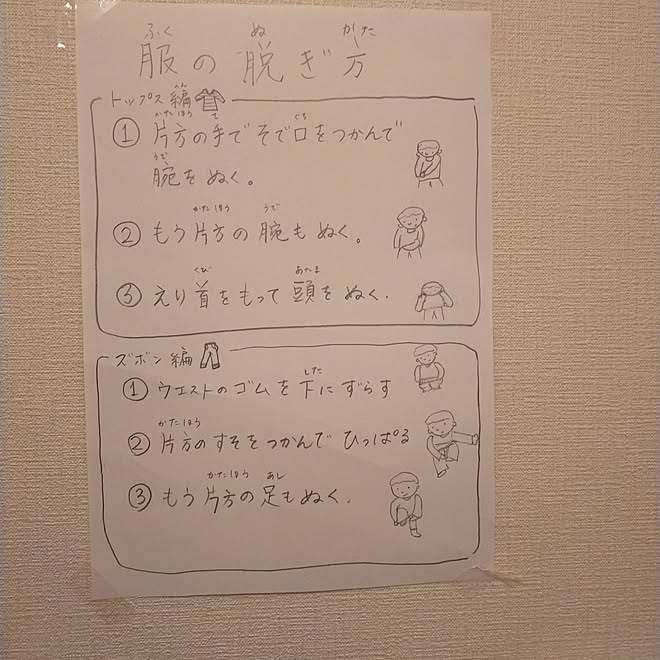 ふく ぬ かた
服の脱ぎ方
トップス編
かたほう て ぐち
① 片方の手でそで口をつかんで
うで
腕をぬく。
かたほう うで
② もう片方の腕もぬく。
くび あたま
③ えり首をもって頭をぬく.
ズボン編
した
① ウエストのゴムを下にずらす
かたほう
② 片方のすそをつかんでひっぱる
かたほう あし
③ もう片方の足もぬく.